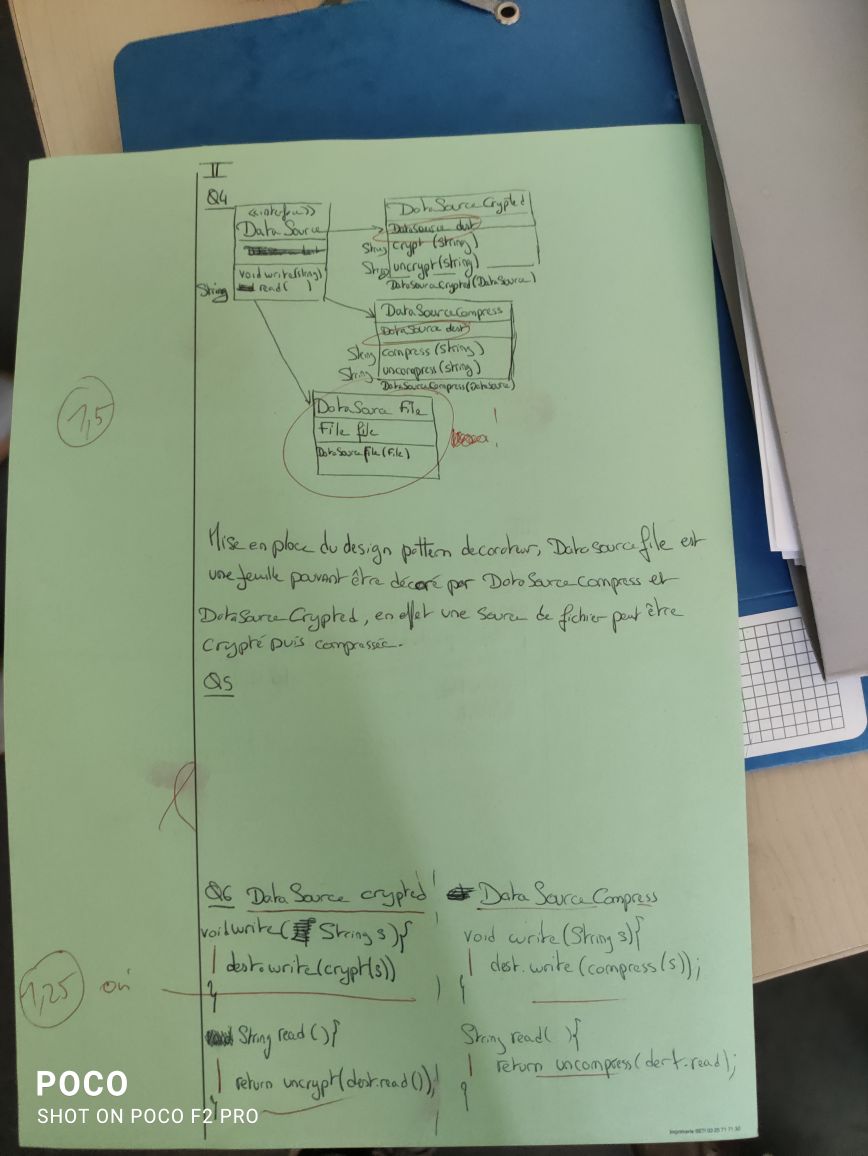 II
Q4
<<interface>>
DataSource
void write(string)
String read( )
DataSourceCrypted
DataSource dest
String crypt(string)
String uncrypt(string)
DataSourceCrypted(DataSource)
DataSourceCompress
DataSource dest
String compress(string)
String uncompress(string)
DataSourceCompress(DataSource)
DataSource File
File file
DataSourceFile(File)
!
1,5
Mise en place du design pattern decorateur, Datasourcefile est
une feuille pouvant être décoré par DataSourceCompress et
DataSourceCrypted, en effet une source de fichier peut être
Crypté puis compressée.
Q5
Q6 DataSource crypted
void write( String s){
dest.write(crypt(s))
}
String read(){
return uncrypt(dest.read());
}
DataSourceCompress
void write(String s){
dest.write(compress(s));
}
String read( ){
return uncompress(dest.read);
}
1,25 oui
POCO
SHOT ON POCO F2 PRO